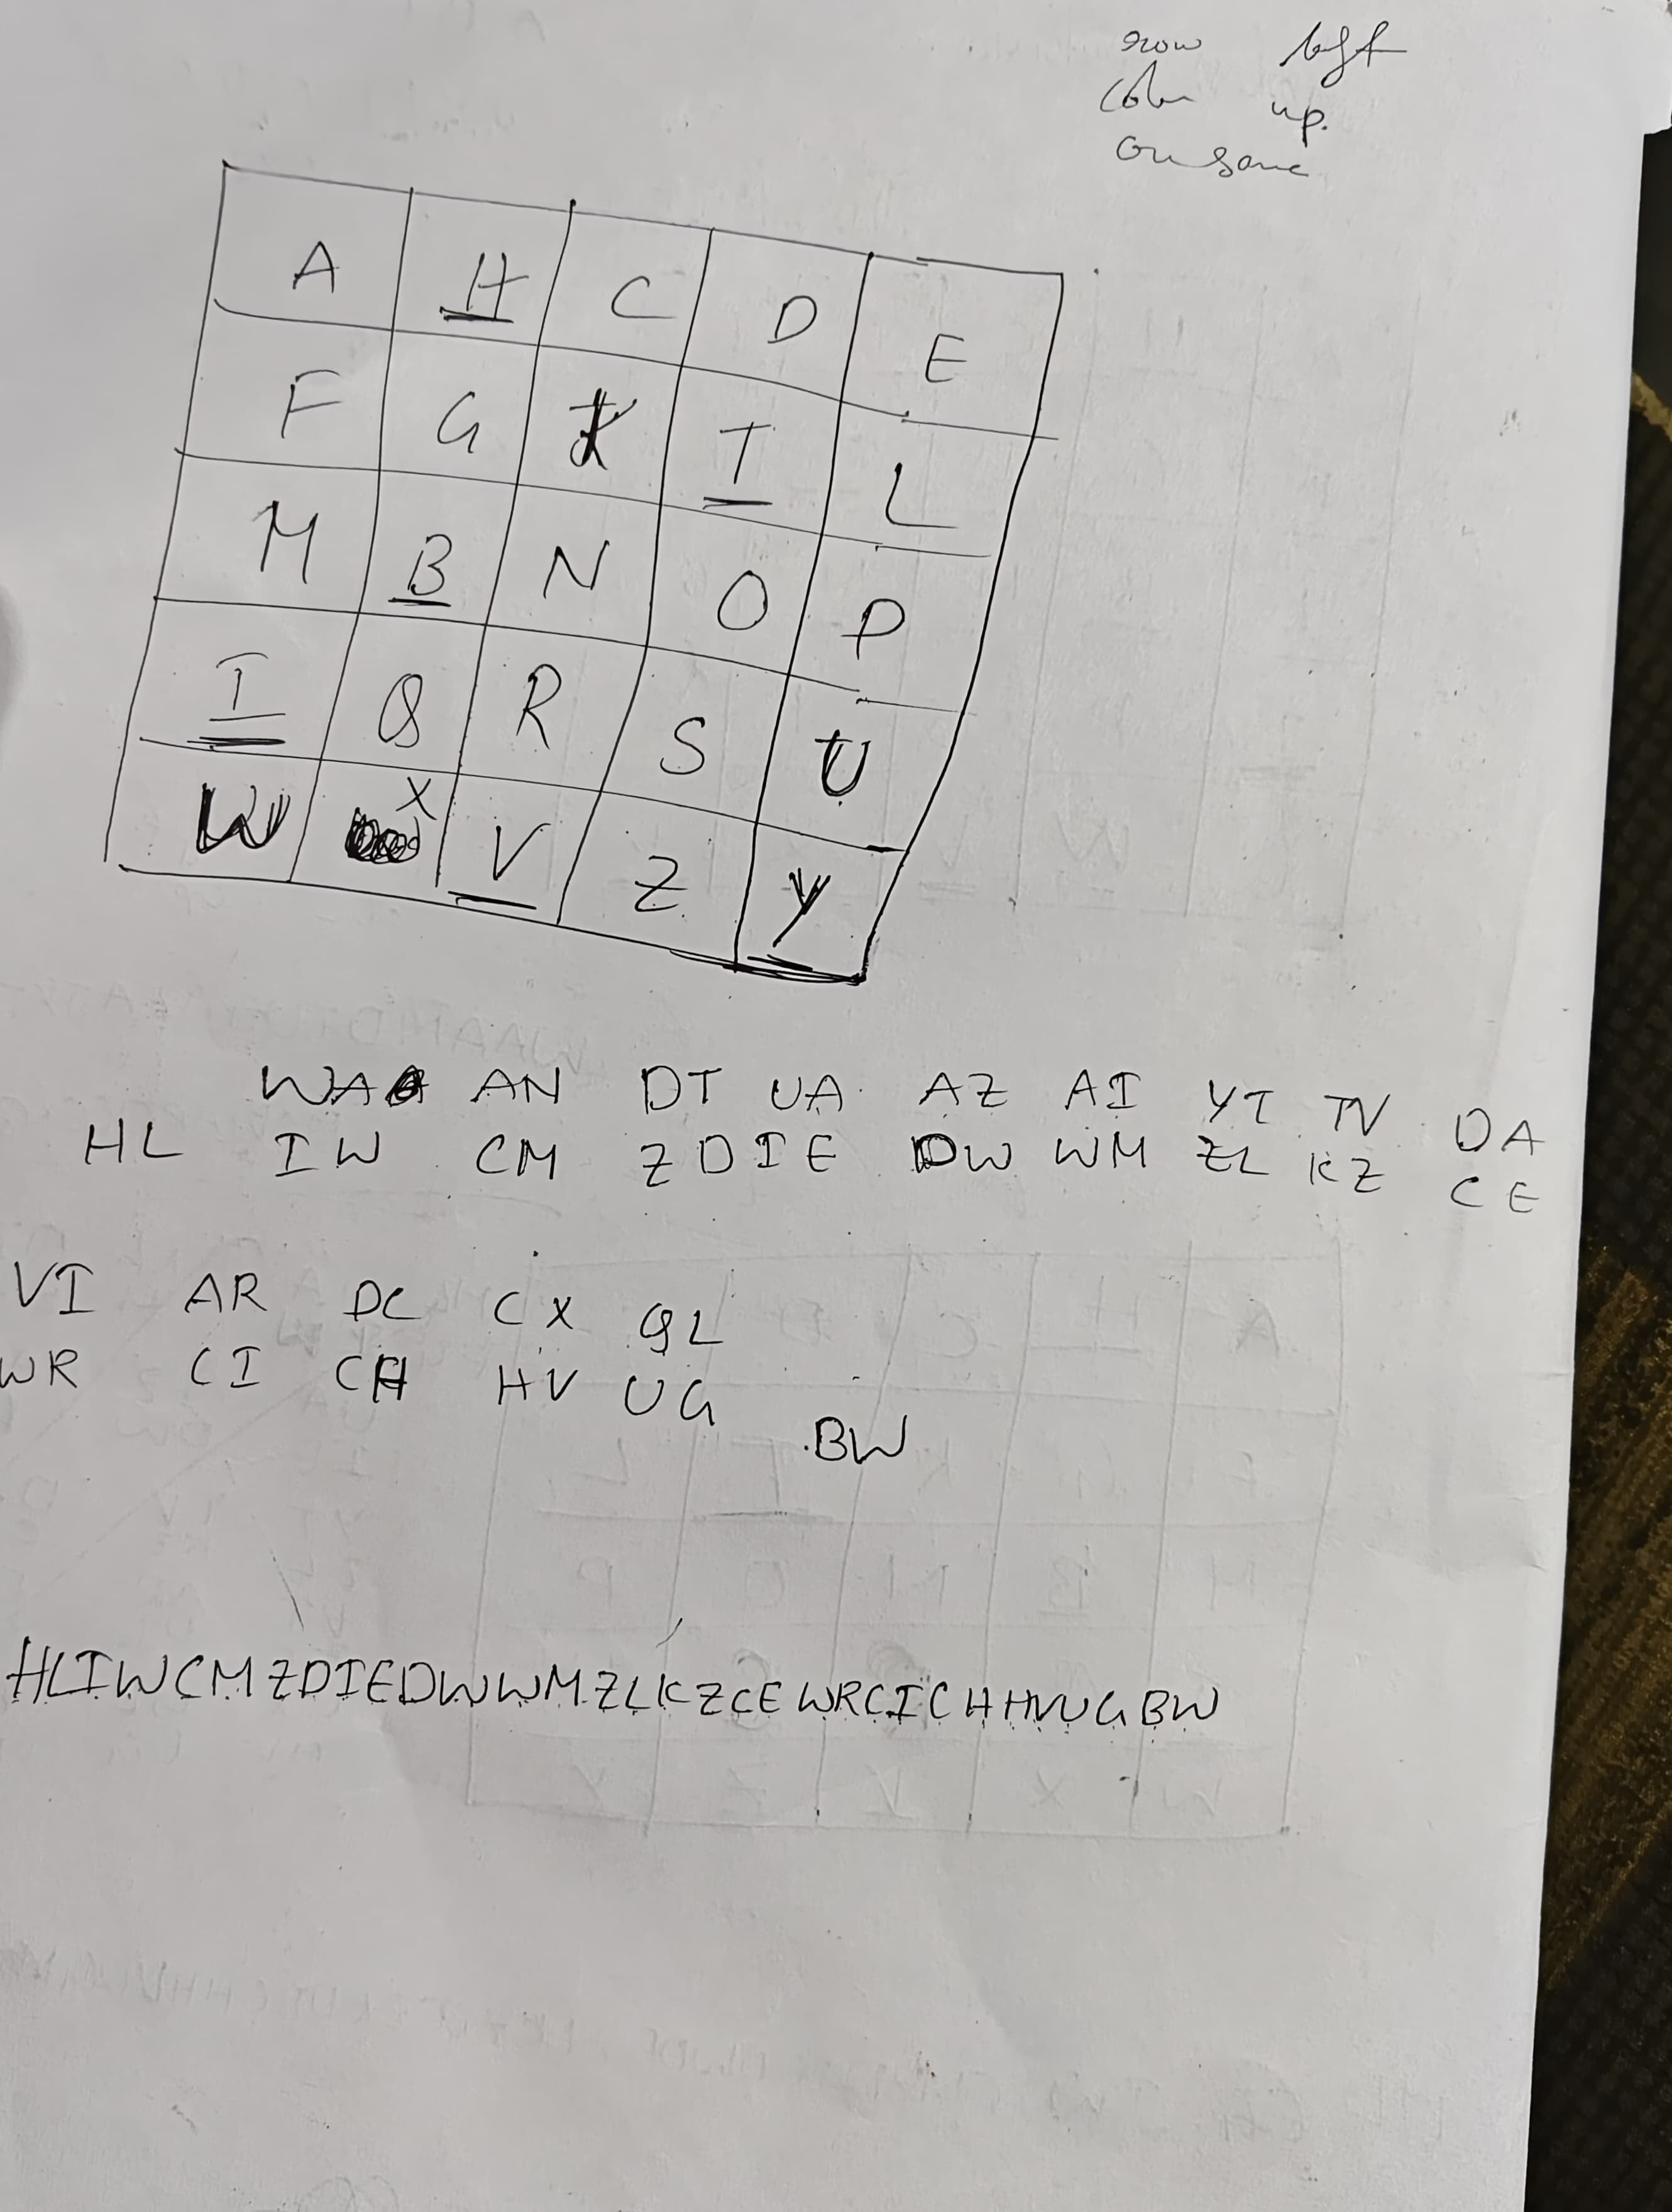 row left
up.
on same
A H C D E
F G K T L
M B N O P
I Q R S U
W X V Z Y
WA AN DT UA AZ AI YT TV DA
HL IW CM ZD IE DW WM ZL KZ CE
VI AR DC CX QL
WR CI CH HV UG
BW
HLIWCMZDIEDWWMZLKZCEWRCICHHVUGBW